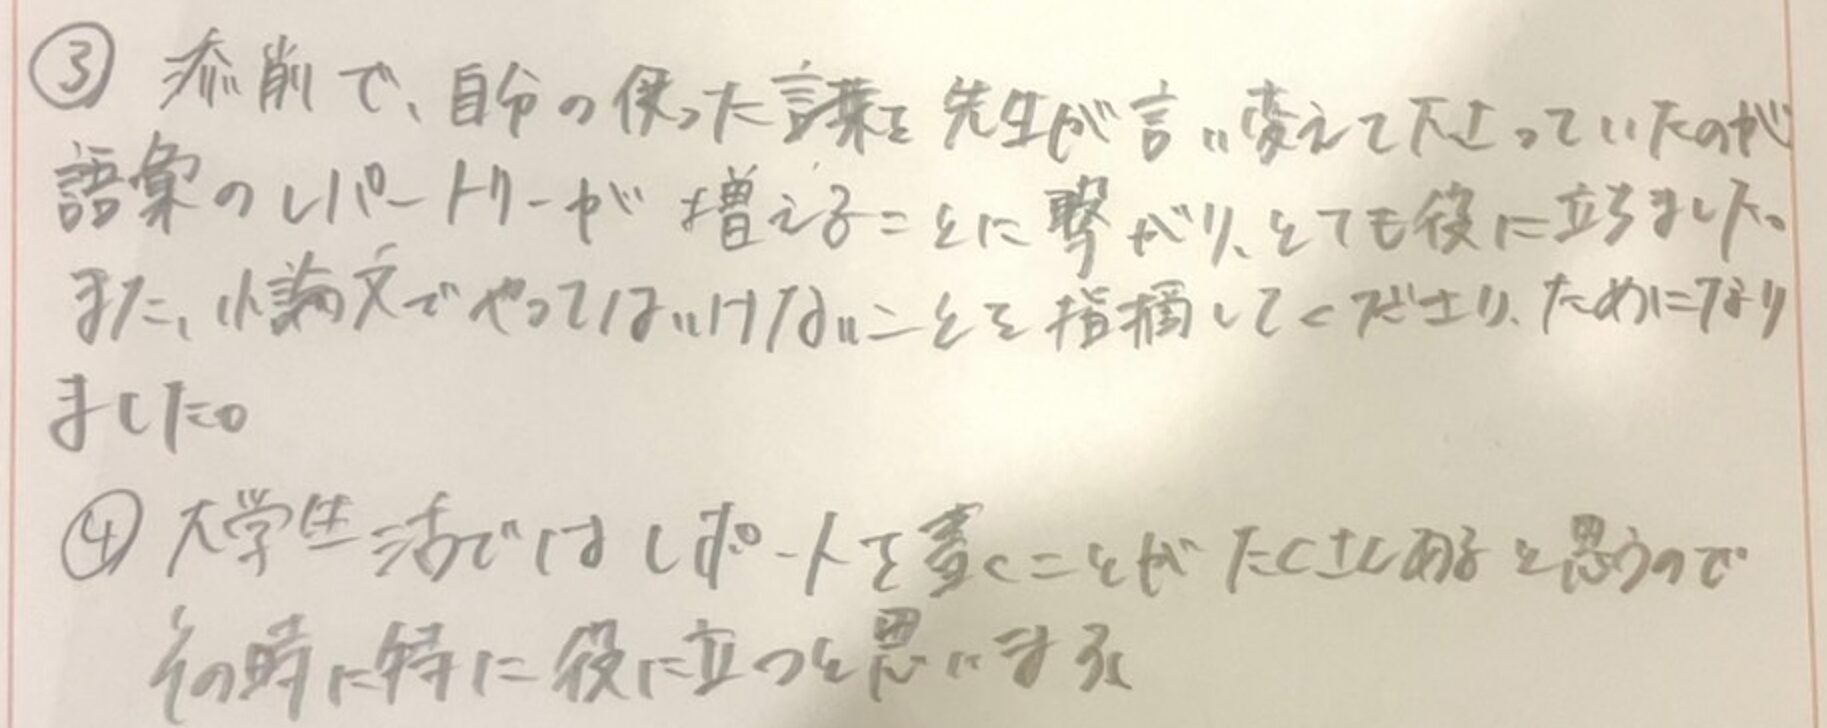 ③ 添削で、自分の使った言葉を先生が言い変えて下さっていたのが
語彙のレパートリーが増えることに繋がり、とても役に立ちました。
また、小論文でやってはいけないことを指摘してくださり、ためになり
ました。
④ 大学生活ではレポートを書くことがたくさんあると思うので
その時に特に役に立つと思います。